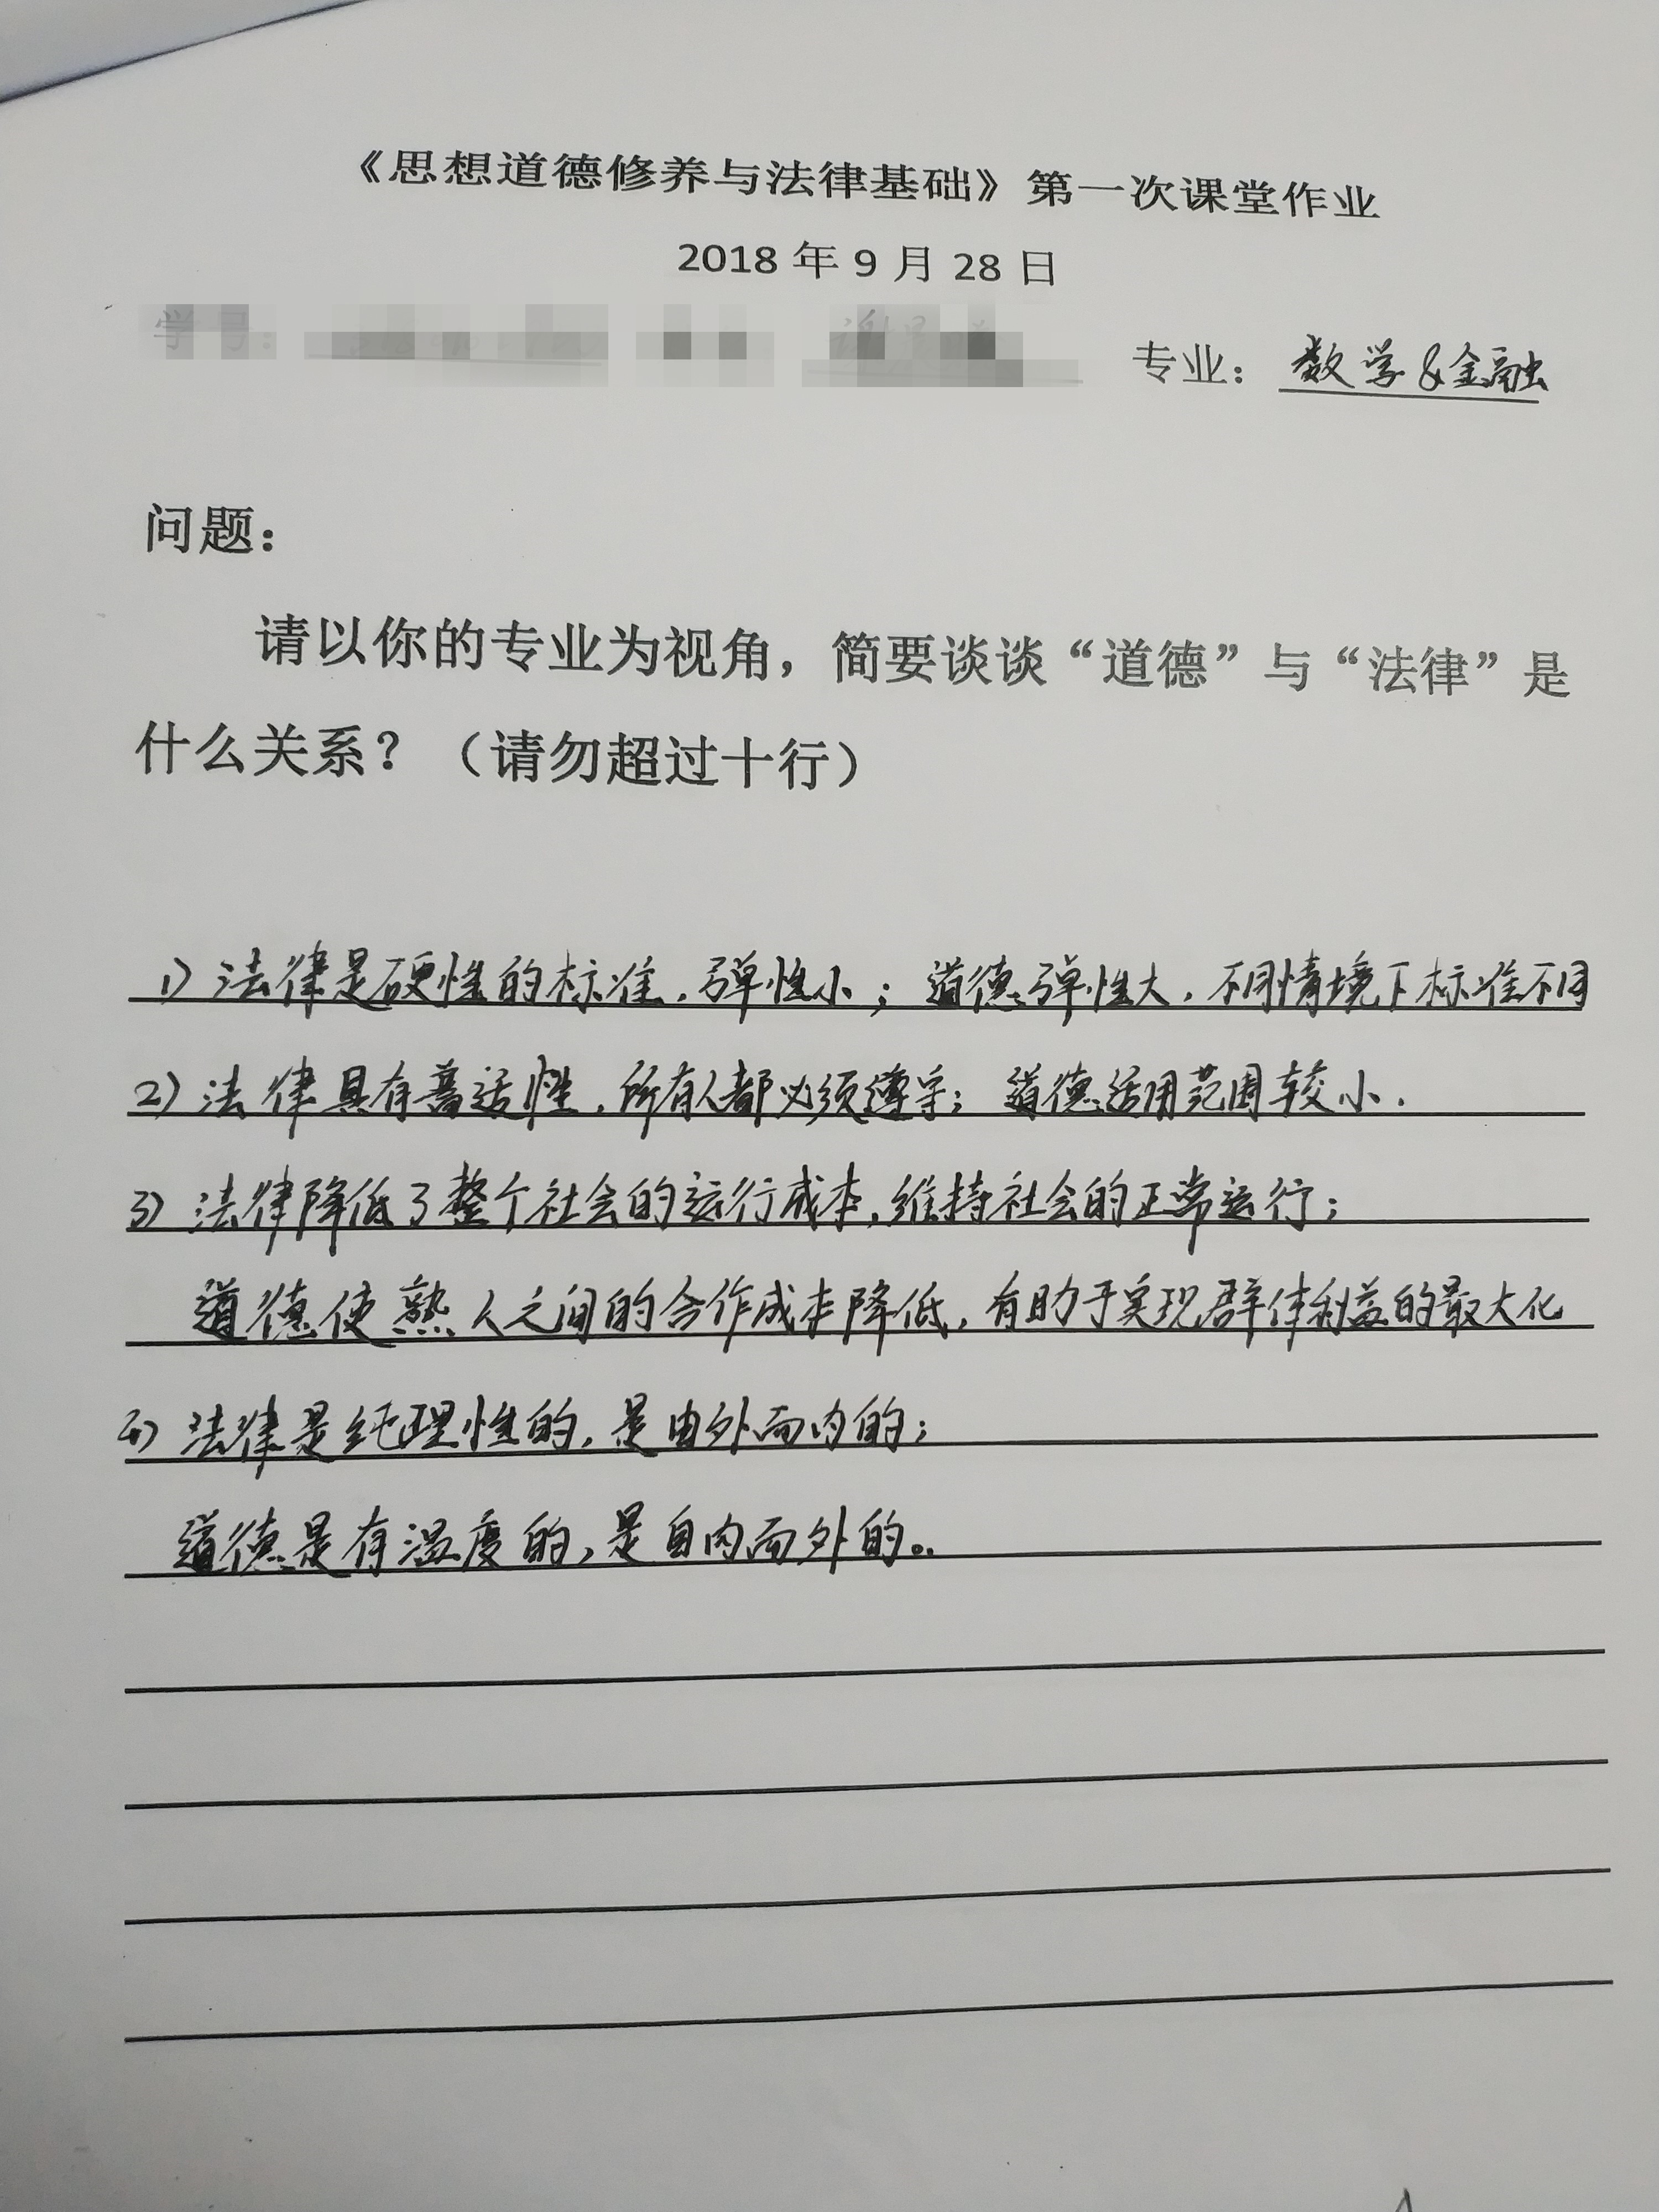 《思想道德修养与法律基础》第一次课堂作业
2018 年 9 月 28 日
学号： 专业：数学&金融
问题：
请以你的专业为视角，简要谈谈“道德”与“法律”是
什么关系？（请勿超过十行）
1) 法律是硬性的标准，弹性小；道德弹性大，不同情境下标准不同
2) 法律具有普适性，所有人都必须遵守；道德适用范围较小．
3) 法律降低了整个社会的运行成本，维持社会的正常运行；
道德使熟人之间的合作成本降低，有助于实现群体利益的最大化
4) 法律是纯理性的，是由外而内的；
道德是有温度的，是自内而外的。